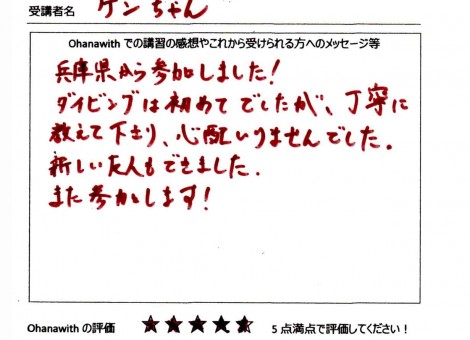 受講者名 ケンちゃん
Ohanawith での講習の感想やこれから受けられる方へのメッセージ等
兵庫県から参加しました!
ダイビングは初めてでしたが、丁寧に
教えて下さり、心配いりませんでした.
新しい友人もできました.
また参加します!
Ohanawith の評価 ★★★★★ 5 点満点で評価してください!